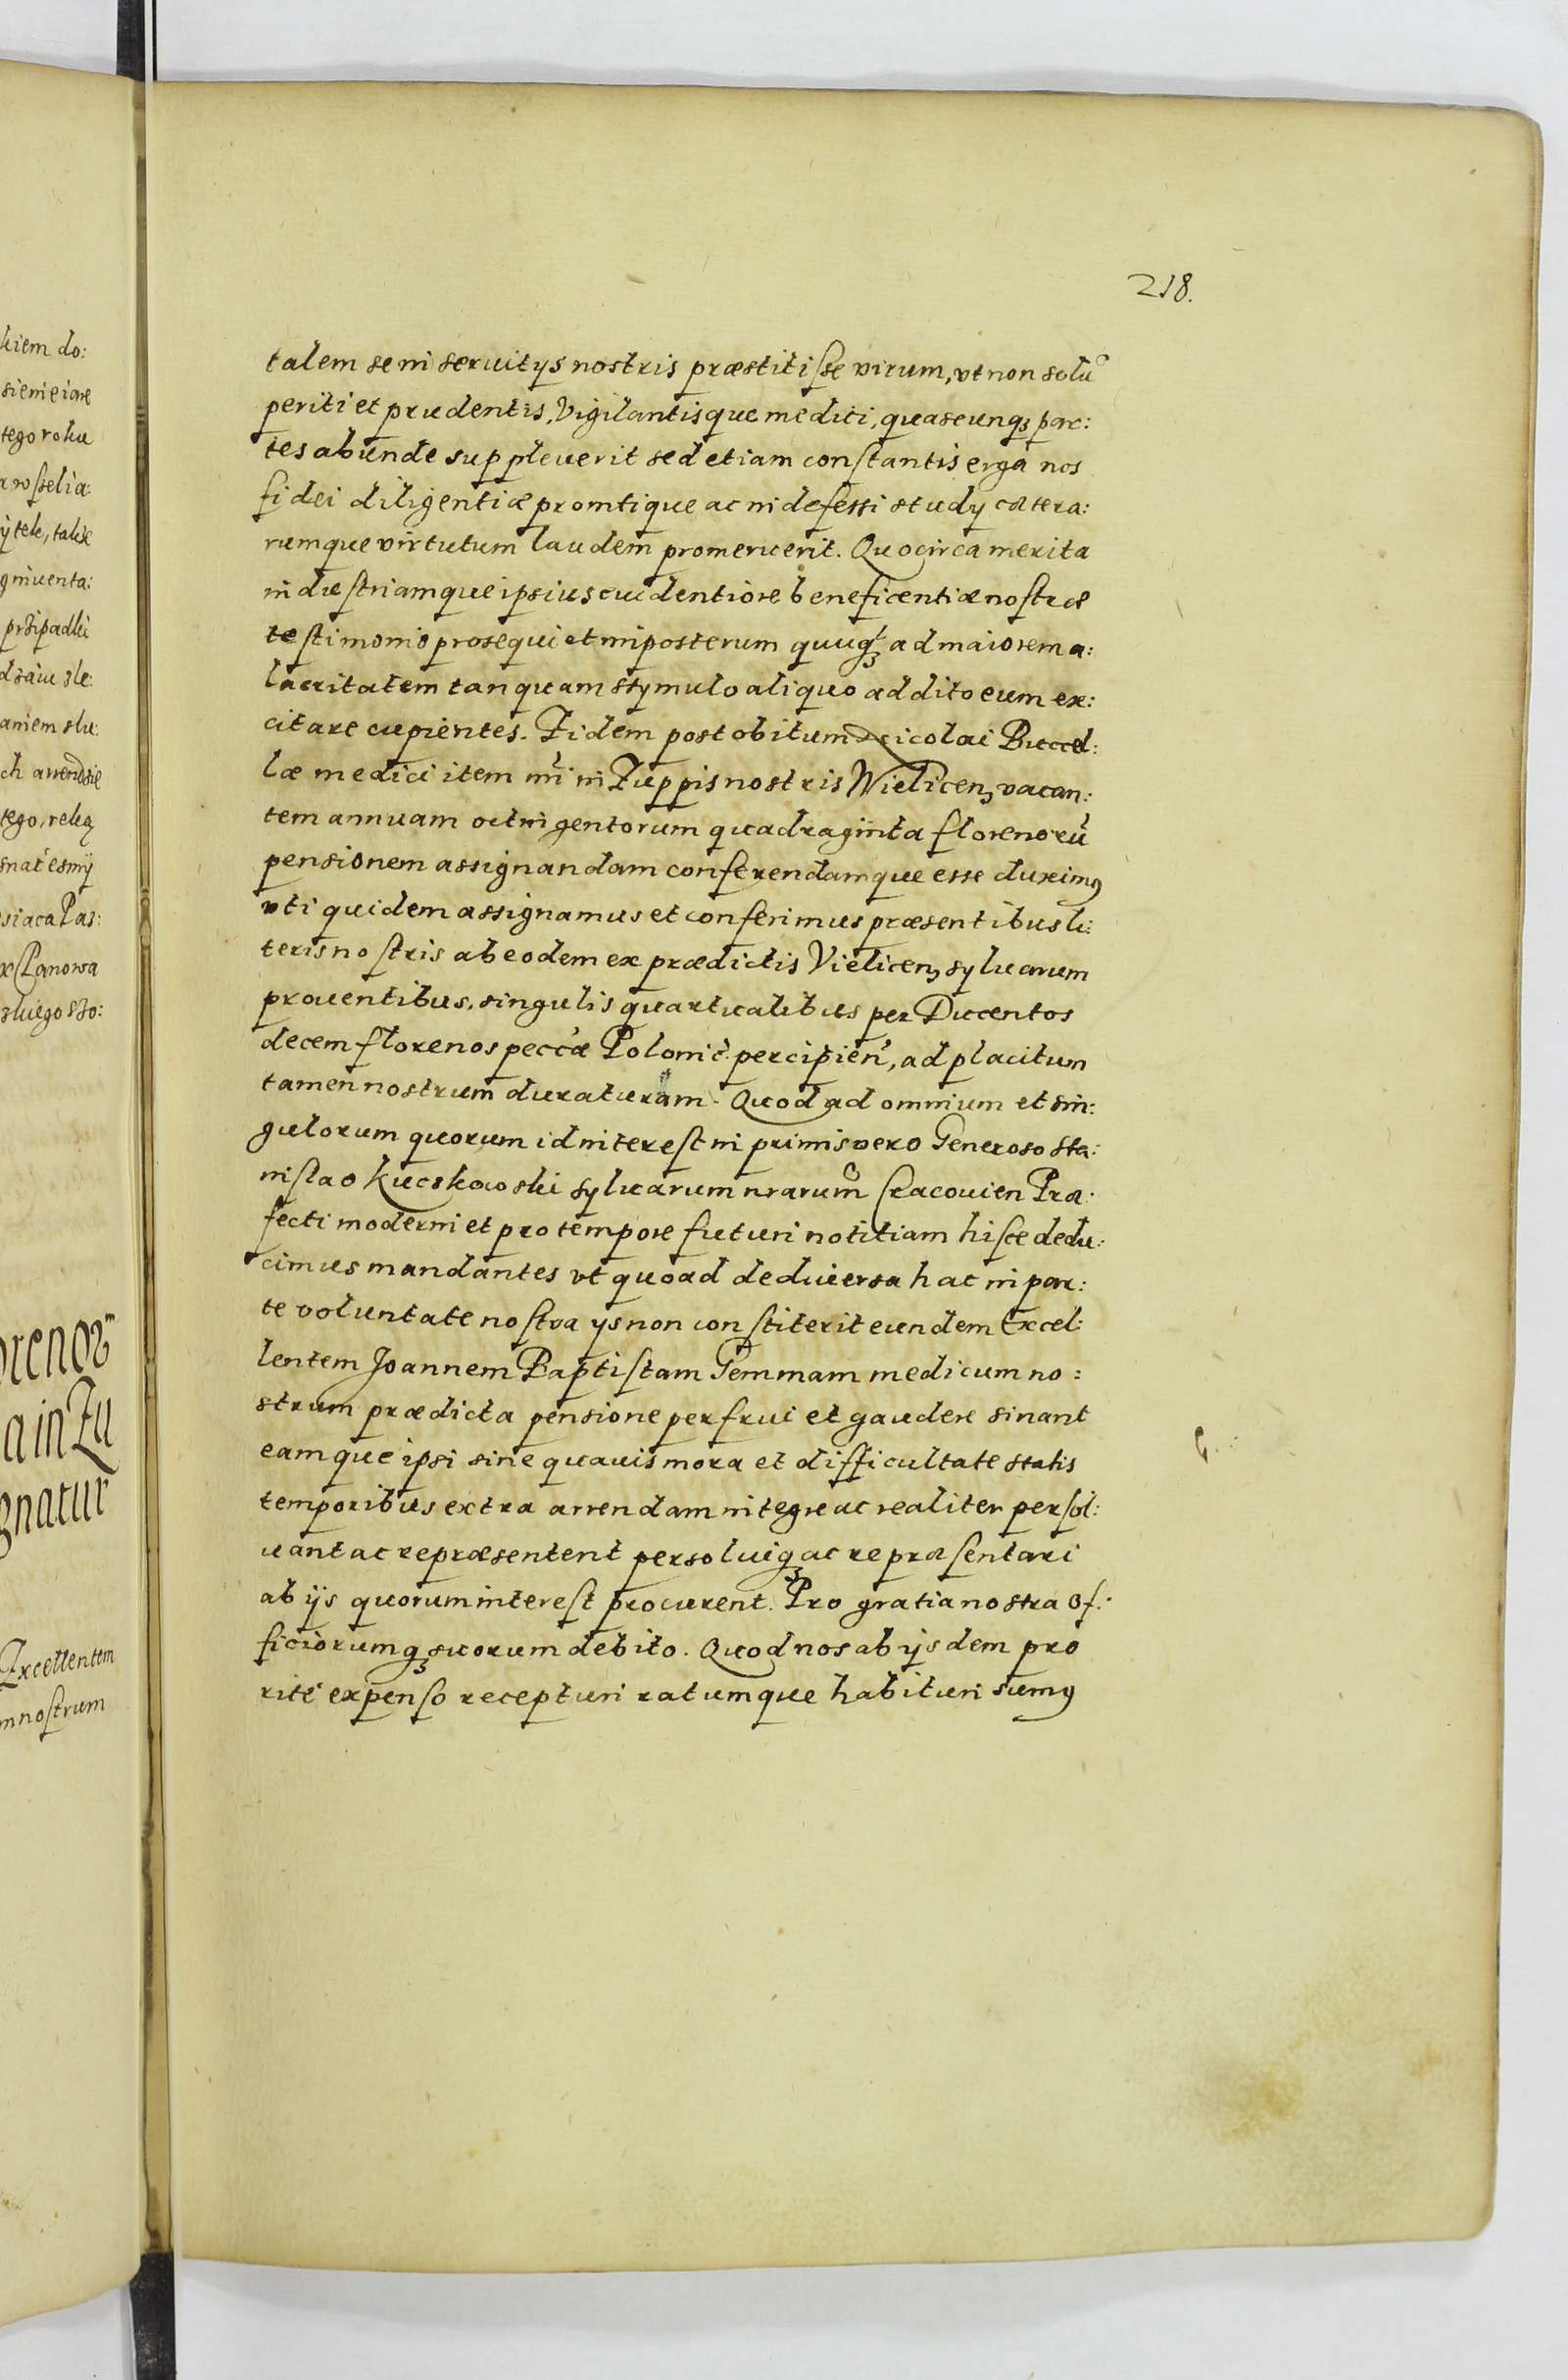 218.
talem se in seruitÿs nostris præstitiſse virum, vt non solũ
periti et prudentis, Vigilantisque medici, quascunqꝫ par:
tes abunde suppleuerit sed etiam conſtantis erga nos
fidei diligentiæ promtique ac indefessi studÿ cætera:
rumque virtutum laudem promeruerit. Quocirca merita
induſtriamque ipsius euidentiore beneficentiæ noſtræ
teſtimonio prosequi et in posterum quuqꝫ ad maiorem a:
lacritatem tanquam stymulo aliquo addito eum ex:
citare cupientes. Eidem post obitum Nicolai Buccel:
læ medici item nr̃i in Zuppis nostris Wielicenꝫ vacan:
tem annuam octingentorum quadraginta florenorũ
pensionem assignandam conferendamque esse duximꝰ
vti quidem assignamus et conferimus præsentibus li:
teris noſtris ab eodem ex prædictis Vielicenꝫ syluarum
prouentibus, singulis quartualibus per Ducentos
decem florenos pecc̃æ Polonic̃ percipien̛, ad placitum
tamen nostrum duraturam. Quod ad omnium et sin:
gulorum quorum id intereſt in primis vero Generoso Sta:
niſlao Kuczkowski syluarum nrarum̃ Cracouien Præ:
fecti moderni et pro tempore futuri notitiam hiſce dedu:
cimus mandantes vt quoad de diuersa hac in par:
te voluntate noſtra ÿs non conſtiterit eundem Excel:
lentem Joannem Baptiſtam Gemmam medicum no:
strum prædicta pensione perfrui et gaudere sinant
eamque ipsi sine quauis mora et difficultate statis
temporibus extra arrendam integre ac realiter perſol:
uant ac repræsentent persoluiqꝫ ac repræſentari
ab ÿs quorum intereſt procurent. Pro gratia nostra Of:
ficiorumqꝫ suorum debito. Quod nos ab ÿsdem pro
rite expenſo recepturi ratumque habituri sumꝰ